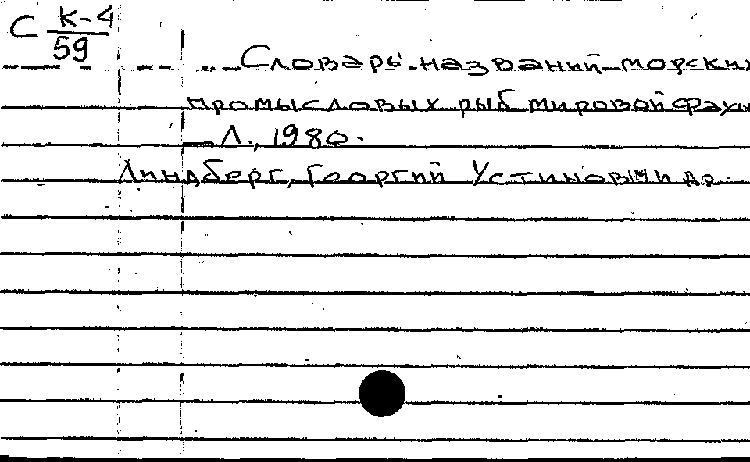 С К-4
59
Словарь названий морских
промысловых рыб мировой фаун
— Л., 1980.
Линдберг, Георгий Устинович и др.